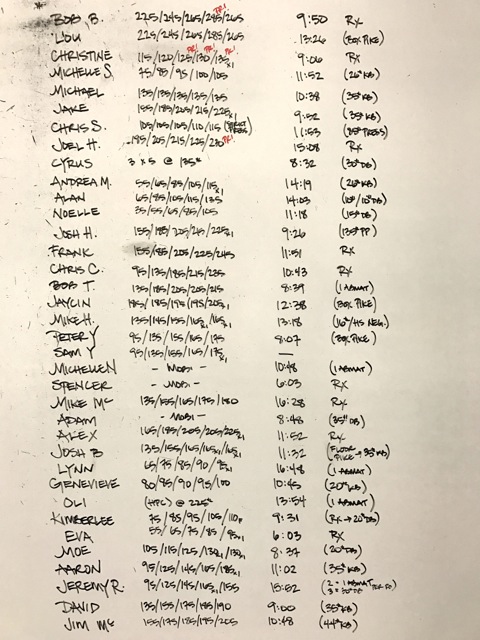 BOB B. 225/245/265/285/265 PR! 9:50 RX
LOU 225/245/265/285/265 13:26 (BOX PIKE)
CHRISTINE 115/120/125/130/135x1 PR! PR! PR! 9:06 RX
MICHELLE S. 75/85/95/100/105 11:52 (26# KB)
MICHAEL 135/135/135/135/135 10:38 (35# KB)
JAKE 155/185/205/215/225x1 9:52 (35# KB)
CHRIS S. 105/105/105/110/115 (STRICT PRESS) 11:53 (85# PRESS)
JOEL H. 185/205/215/225/230 PR! 15:08 RX
CYRUS 3 x 5 @ 135# 8:32 (30# DB)
ANDREA M. 55/65/85/105/115x1 14:19 (26# KB)
ALAN 65/85/105/115/135 14:03 (10#/15# DB)
NOELLE 35/55/65/85/105 11:18 (15# DB)
JOSH H. 155/185/205/245/225x1 9:26 (135# PP)
FRANK 155/185/205/225/245 11:51 RX
CHRIS C. 95/135/185/215/235 10:43 RX
BOB T 135/185/205/205/215 8:39 (1 ABMAT)
JAYCIN 185/185/195/195/205x1 12:38 (BOX PIKE)
MIKE H. 135/145/155/165x1/165x1 13:18 (16"/HS NEG.)
PETER Y 95/135/155/165/175 8:07 (BOX PIKE)
SAM Y 95/135/155/165/175x1 —
MICHELLE N - MOBI - 10:48 (1 ABMAT)
SPENCER - MOBI - 6:03 RX
MIKE Mc 135/155/165/175/180 16:28 RX
ADAM - MOBI - 8:48 (35# DB)
ALEX 165/185/205/205/225x1 11:52 RX
JOSH B 135/155/165/165x1/165x1 11:32 (FLOOR PIKE → 35# DB)
LYNN 65/75/85/90/95x1 16:48 (1 ABMAT)
GENEVIEVE 80/85/90/95/100 10:45 (20# KB)
OLI (HPC) @ 225# 13:54 (1 ABMAT)
KIMBERLEE 75/85/95/105/110x1 9:31 (RX → 20# DB)
EVA 55/65/75/85/95x1 6:03 RX
MOE 105/115/125/132x1/132x1 8:37 (20# DB)
AARON 95/125/145/165/185x1 11:02 (35# KB)
JEREMY R. 95/125/145/165x1/155 15:52 (2 = 1 ABMAT 3 = 30# DB
DAVID 135/155/175/185/190 9:00 (35# KB)
JIM Mc 155/175/185/195/205 10:48 (44# KB)